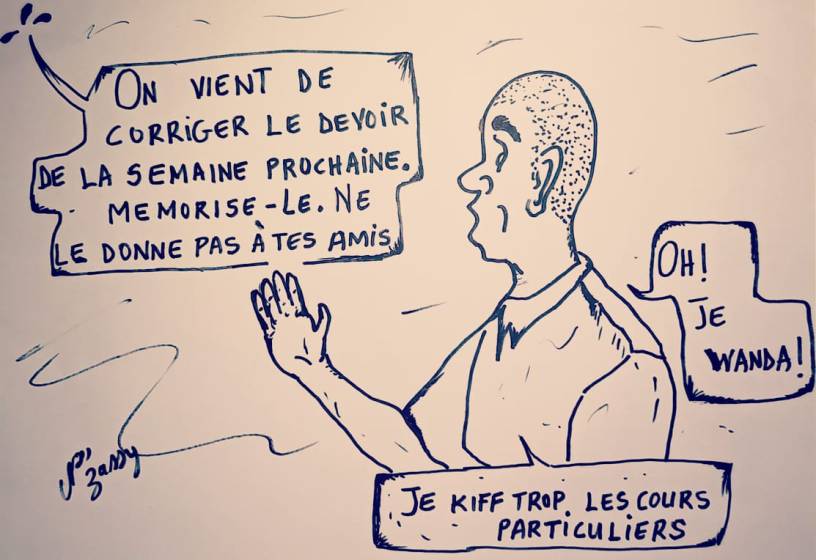 ON VIENT DE
CORRIGER LE DEVOIR
DE LA SEMAINE PROCHAINE.
MEMORISE-LE. NE
LE DONNE PAS À TES AMIS
OH!
JE
WANDA!
JE KIFF TROP LES COURS
PARTICULIERS